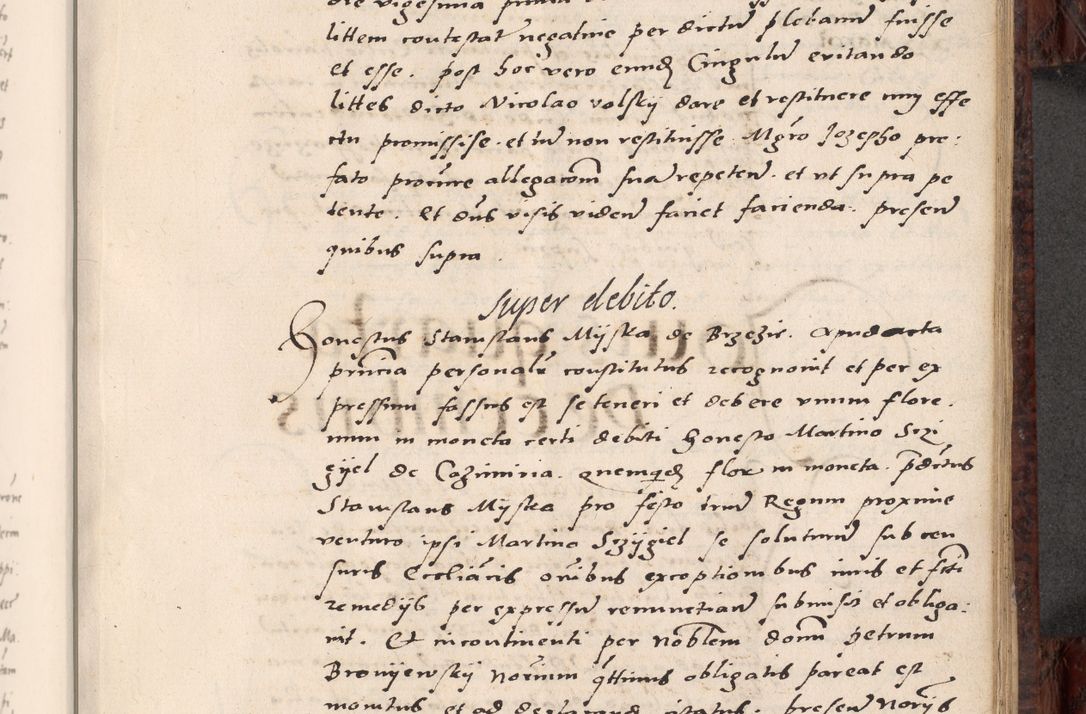 littem contestat negative per dictu plebanu fuisse
et esse. post hoc vero eundē Cingulu evitando
littes dicto Nicolao volskij dare et restituere cum effe
ctu promississe. et tn non restituisse. Mgro Jozepho pre:
fato procure allegacom sua repeten. et ut supra pe
tente. Et dns visis viden faciet facienda. presen
quibus supra
super debito.
Honestus Stanislaus Mijska de Brzezie. apud acta
pncia personalr constitutus recognovit et per ex
pressum fassus est se teneri et debere unum flore.
num in moneta certi debiti honesto Martino Szi
gijel de Cazimiria. quemqdē flor in moneta. pdictus
Stanislaus Mijska pro festo trium Regum proxime
venturo ipsi Martino Szijgiel se soluturu sub cen
suris Eccliacis oibus exceptionibus iuris et fcti
remedijs per expressu renunctian submisit et obliga:
vit. Et incontinenti per Noblem domi petrum
Bronijewskij Norium qttinus obligatis pareat est
monitus et ad presen Norijs